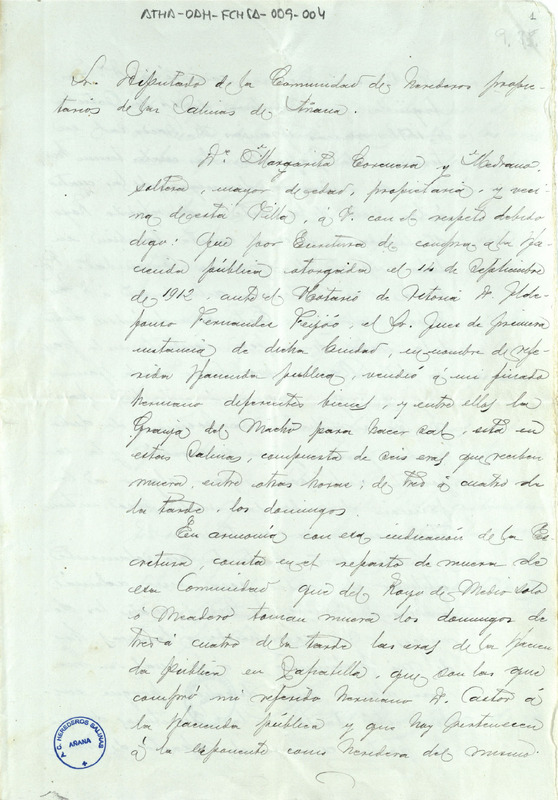 ATHA-DAH-FCHSA-009-004
1
Sr. Diputado de la Comunidad de herederos propie-
tarios de las Salinas de Añana.
Dª Margarita Corcuera y Medrano,
soltera, mayor de edad, propietaria, y veci-
na de esta Villa, á V. con el respeto debido
digo: Que por Escritura de compra á la Ha-
cienda pública otorgada el 14 de Septiembre
de 1912 ante el Notario de Vitoria D. Ilde-
fonso Fernandez Feijóo, el Sr. Juez de primera
instancia de dicha Ciudad, en nombre de refe-
rida Hacienda pública, vendió á mi finado
hermano diferentes bienes, y entre ellos la
Granja del Macho para hacer sal, sita en
estas Salinas, compuesta de seis eras que reciben
muera, entre otras horas; de tres á cuatro de
la tarde, los domingos.
En armonía con esa indicación de la Es-
critura, consta en el reparto de muera de
esa Comunidad que del Royo de Medio
ó Meadero toman muera los domingos de
tres á cuatro de la tarde las eras de la Hacien-
da Pública en Zapatilla, que son las que
compró mi referido hermano D. Castor á
la Hacienda pública y que hoy pertenecen
á la exponente como heredera del mismo.
C. HEREDEROS SALINAS
AÑANA